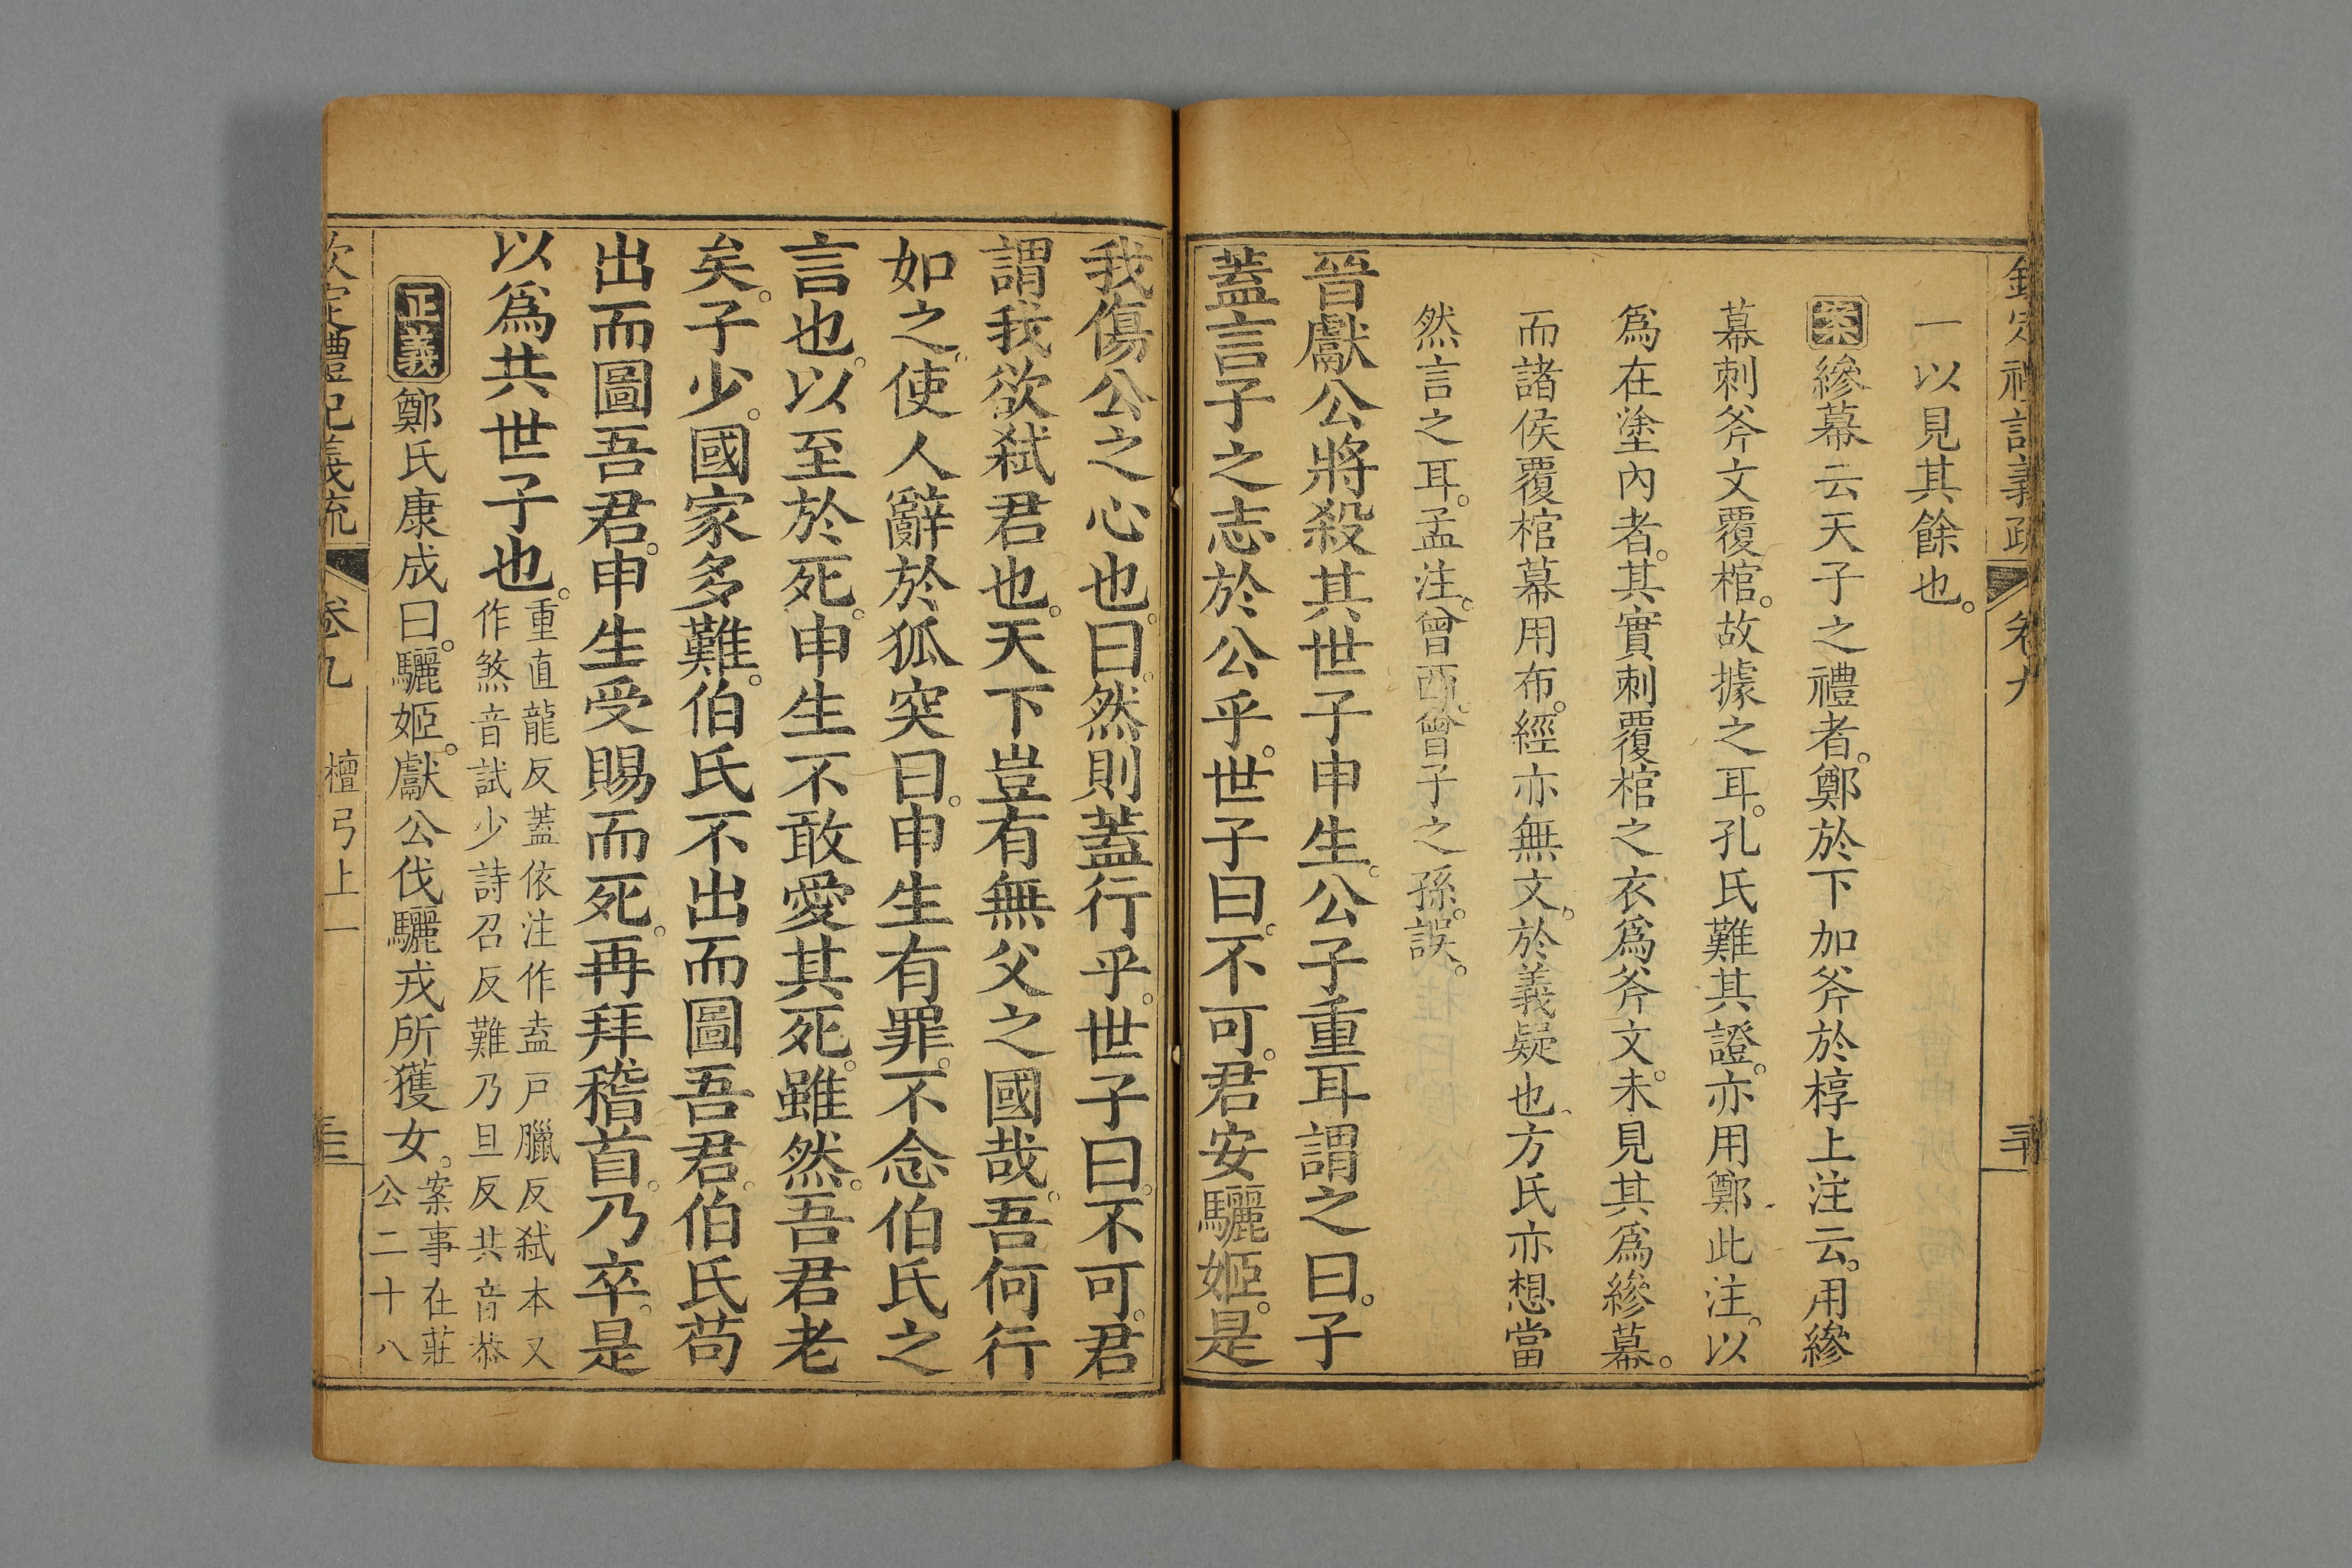 欽定禮記義疏 卷九 三十
一以見其餘也。
案 縿幕云天子之禮者。鄭於下加斧於椁上注云。用縿
幕刺斧文覆棺。故據之耳。孔氏難其證。亦用鄭此注。以
爲在塗內者。其實刺覆棺之衣爲斧文。未見其爲縿幕。
而諸侯覆棺幕用布。經亦無文。於義疑也、方氏亦想當
然言之耳。孟注。曾西。曾子之孫。誤。
晉獻公將殺其世子申生。公子重耳謂之曰。子
蓋言子之志於公乎。世子曰。不可。君安驪姬。是
我傷公之心也。曰。然則蓋行乎。世子曰。不可。君
謂我欲弒君也。天下豈有無父之國哉。吾何行
如之。使人辭於狐突曰。申生有罪。不念伯氏之
言也。以至於死。申生不敢愛其死。雖然。吾君老
矣。子少。國家多難。伯氏不出而圖吾君。伯氏苟
出而圖吾君。申生受賜而死。再拜稽首。乃卒。是
以爲共世子也。
重直龍反蓋依注作盍戶臘反弒本又
作煞音試少詩召反難乃旦反共音恭
正義 鄭氏康成曰。驪姬。獻公伐驪戎所獲女。
案事在莊
公二十八
欽定禮記義疏 卷九 檀弓上一